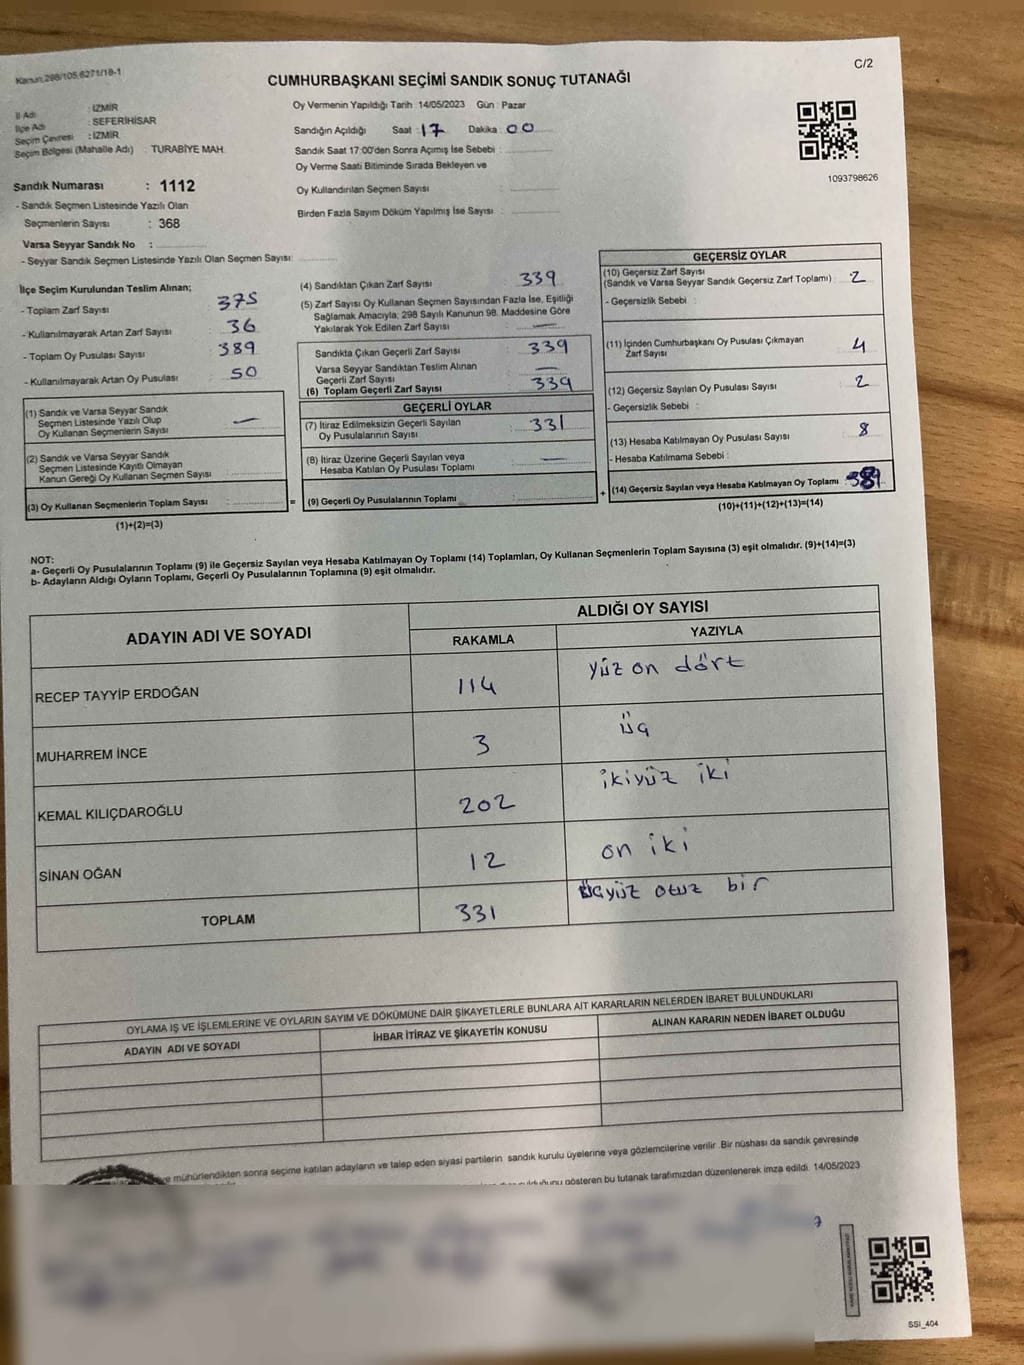 Kanun:298/105,6271/18-1
C/2
CUMHURBAŞKANI SEÇİMİ SANDIK SONUÇ TUTANAĞI
İl Adı : İZMİR
İlçe Adı : SEFERİHİSAR
Seçim Çevresi : İZMİR
Seçim Bölgesi (Mahalle Adı) : TURABİYE MAH.
Sandık Numarası : 1112
- Sandık Seçmen Listesinde Yazılı Olan
Seçmenlerin Sayısı : 368
Varsa Seyyar Sandık No :
- Seyyar Sandık Seçmen Listesinde Yazılı Olan Seçmen Sayısı:
Oy Vermenin Yapıldığı Tarih :14/05/2023 Gün : Pazar
Sandığın Açıldığı Saat : 17 Dakika : 00
Sandık Saat 17:00'den Sonra Açımış İse Sebebi :
Oy Verme Saati Bitiminde Sırada Bekleyen ve
Oy Kullandırılan Seçmen Sayısı :
Birden Fazla Sayım Döküm Yapılmış İse Sayısı :
1093798626
İlçe Seçim Kurulundan Teslim Alınan;
- Toplam Zarf Sayısı : 375
- Kullanılmayarak Artan Zarf Sayısı : 36
- Toplam Oy Pusulası Sayısı : 389
- Kullanılmayarak Artan Oy Pusulası : 50
(1) Sandık ve Varsa Seyyar Sandık
Seçmen Listesinde Yazılı Olup
Oy Kullanan Seçmenlerin Sayısı : —
(2) Sandık ve Varsa Seyyar Sandık
Seçmen Listesinde Kayıtlı Olmayan
Kanun Gereği Oy Kullanan Seçmen Sayısı :
(3) Oy Kullanan Seçmenlerin Toplam Sayısı :
(1)+(2)=(3)
=
(4) Sandıktan Çıkan Zarf Sayısı : 339
(5) Zarf Sayısı Oy Kullanan Seçmen Sayısından Fazla İse, Eşitliği
Sağlamak Amacıyla, 298 Sayılı Kanunun 98. Maddesine Göre
Yakılarak Yok Edilen Zarf Sayısı : —
Sandıkta Çıkan Geçerli Zarf Sayısı : 339
Varsa Seyyar Sandıktan Teslim Alınan
Geçerli Zarf Sayısı : —
(6) Toplam Geçerli Zarf Sayısı : 339
GEÇERLİ OYLAR
(7) İtiraz Edilmeksizin Geçerli Sayılan
Oy Pusulalarının Sayısı : 331
(8) İtiraz Üzerine Geçerli Sayılan veya
Hesaba Katılan Oy Pusulası Toplamı : —
(9) Geçerli Oy Pusulalarının Toplamı :
+
GEÇERSİZ OYLAR
(10) Geçersiz Zarf Sayısı
(Sandık ve Varsa Seyyar Sandık Geçersiz Zarf Toplamı) : 2
- Geçersizlik Sebebi :
(11) İçinden Cumhurbaşkanı Oy Pusulası Çıkmayan
Zarf Sayısı : 4
(12) Geçersiz Sayılan Oy Pusulası Sayısı : 2
- Geçersizlik Sebebi :
(13) Hesaba Katılmayan Oy Pusulası Sayısı : 8
- Hesaba Katılmama Sebebi :
(14) Geçersiz Sayılan veya Hesaba Katılmayan Oy Toplamı
(10)+(11)+(12)+(13)=(14)
NOT:
a- Geçerli Oy Pusulalarının Toplamı (9) ile Geçersiz Sayılan veya Hesaba Katılmayan Oy Toplamı (14) Toplamları, Oy Kullanan Seçmenlerin Toplam Sayısına (3) eşit olmalıdır. (9)+(14)=(3)
b- Adayların Aldığı Oyların Toplamı, Geçerli Oy Pusulalarının Toplamına (9) eşit olmalıdır.
ADAYIN ADI VE SOYADI ALDIĞI OY SAYISI
RAKAMLA YAZIYLA
RECEP TAYYİP ERDOĞAN 114 yüz on dört
MUHARREM İNCE 3 üç
KEMAL KILIÇDAROĞLU 202 ikiyüz iki
SİNAN OĞAN 12 on iki
TOPLAM 331 üçyüz otuz bir
OYLAMA İŞ VE İŞLEMLERİNE VE OYLARIN SAYIM VE DÖKÜMÜNE DAİR ŞİKAYETLERLE BUNLARA AİT KARARLARIN NELERDEN İBARET BULUNDUKLARI
ADAYIN ADI VE SOYADI İHBAR İTİRAZ VE ŞİKAYETİN KONUSU ALINAN KARARIN NEDEN İBARET OLDUĞU
ve mühürlendikten sonra seçime katılan adayların ve talep eden siyasi partilerin sandık kurulu üyelerine veya gözlemcilerine verilir. Bir nüshası da sandık çevresinde
gösteren bu tutanak tarafımızdan düzenlenerek imza edildi. 14/05/2023
SSİ_404